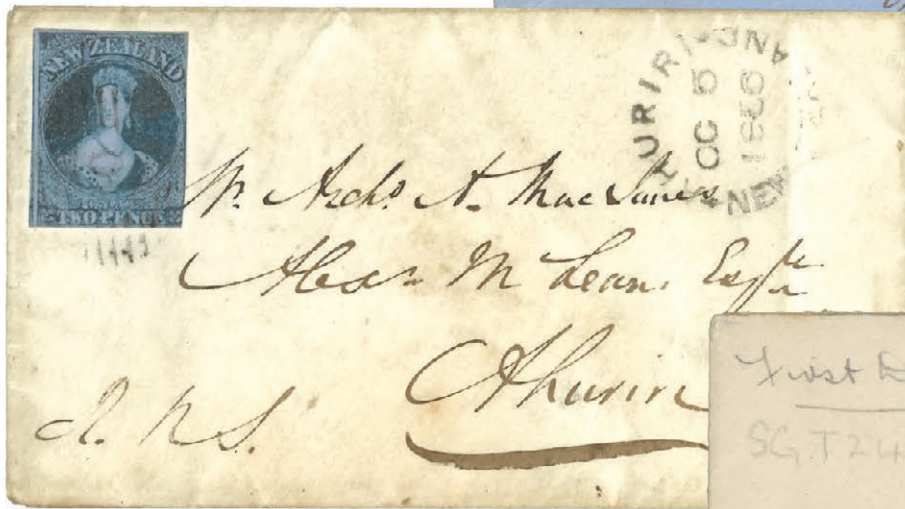 NEW ZEALAND
POSTAGE
TWO PENCE
AHURIRI
OC 5
1856
NEW
Mr. Archd. A. Mac Innes
Alexr. McLean, Esqre
Ahuriri
N. S.
First
SG T24